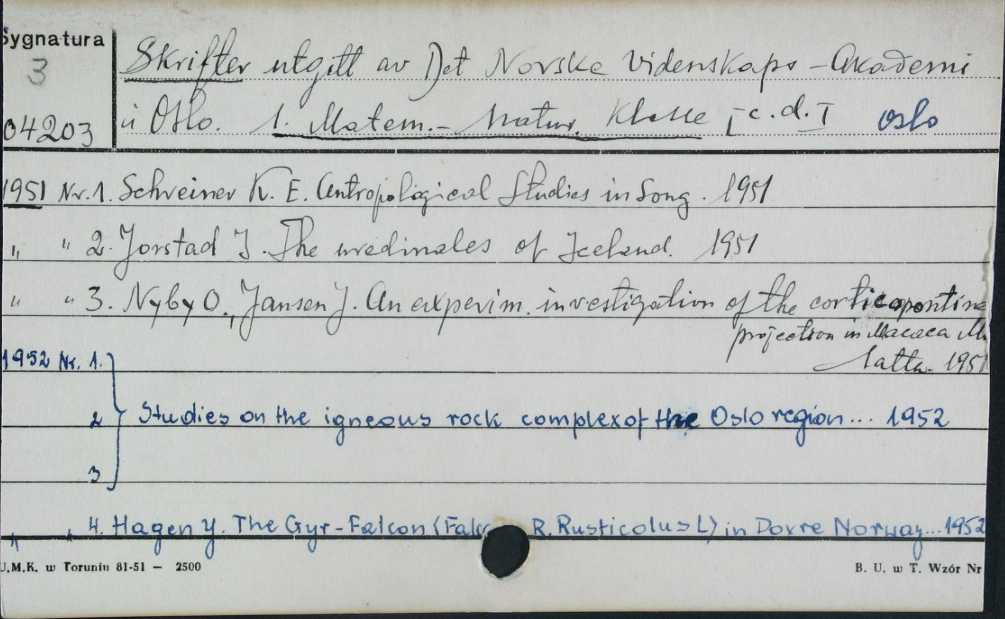 Sygnatura
3
04203
Skrifter utgitt av Det Norske Videnskaps-Akademi
i Oslo. 1. Matem.- Natur. Klasse I c.d. I Oslo
1951 Nr. 1. Schreiner K. E. Antropological Studies in Song. 1951
" " 2. Jorstad J. The uredinales of Iceland. 1951
" " 3. Nyby O., Jansen J. An experim. investigation of the corticopontine
projection in Macaca Mu
latta. 1951
1952 Nr. 1.
2 Studies on the igneous rock complex of the Oslo region... 1952
3
" " 4. Hagen Y. The Gyr-Falcon (Falc R. Rusticolus L) in Dovre Norway... 1952
U.M.K. w Toruniu 81-51 — 2500
B. U. w T. Wzór Nr